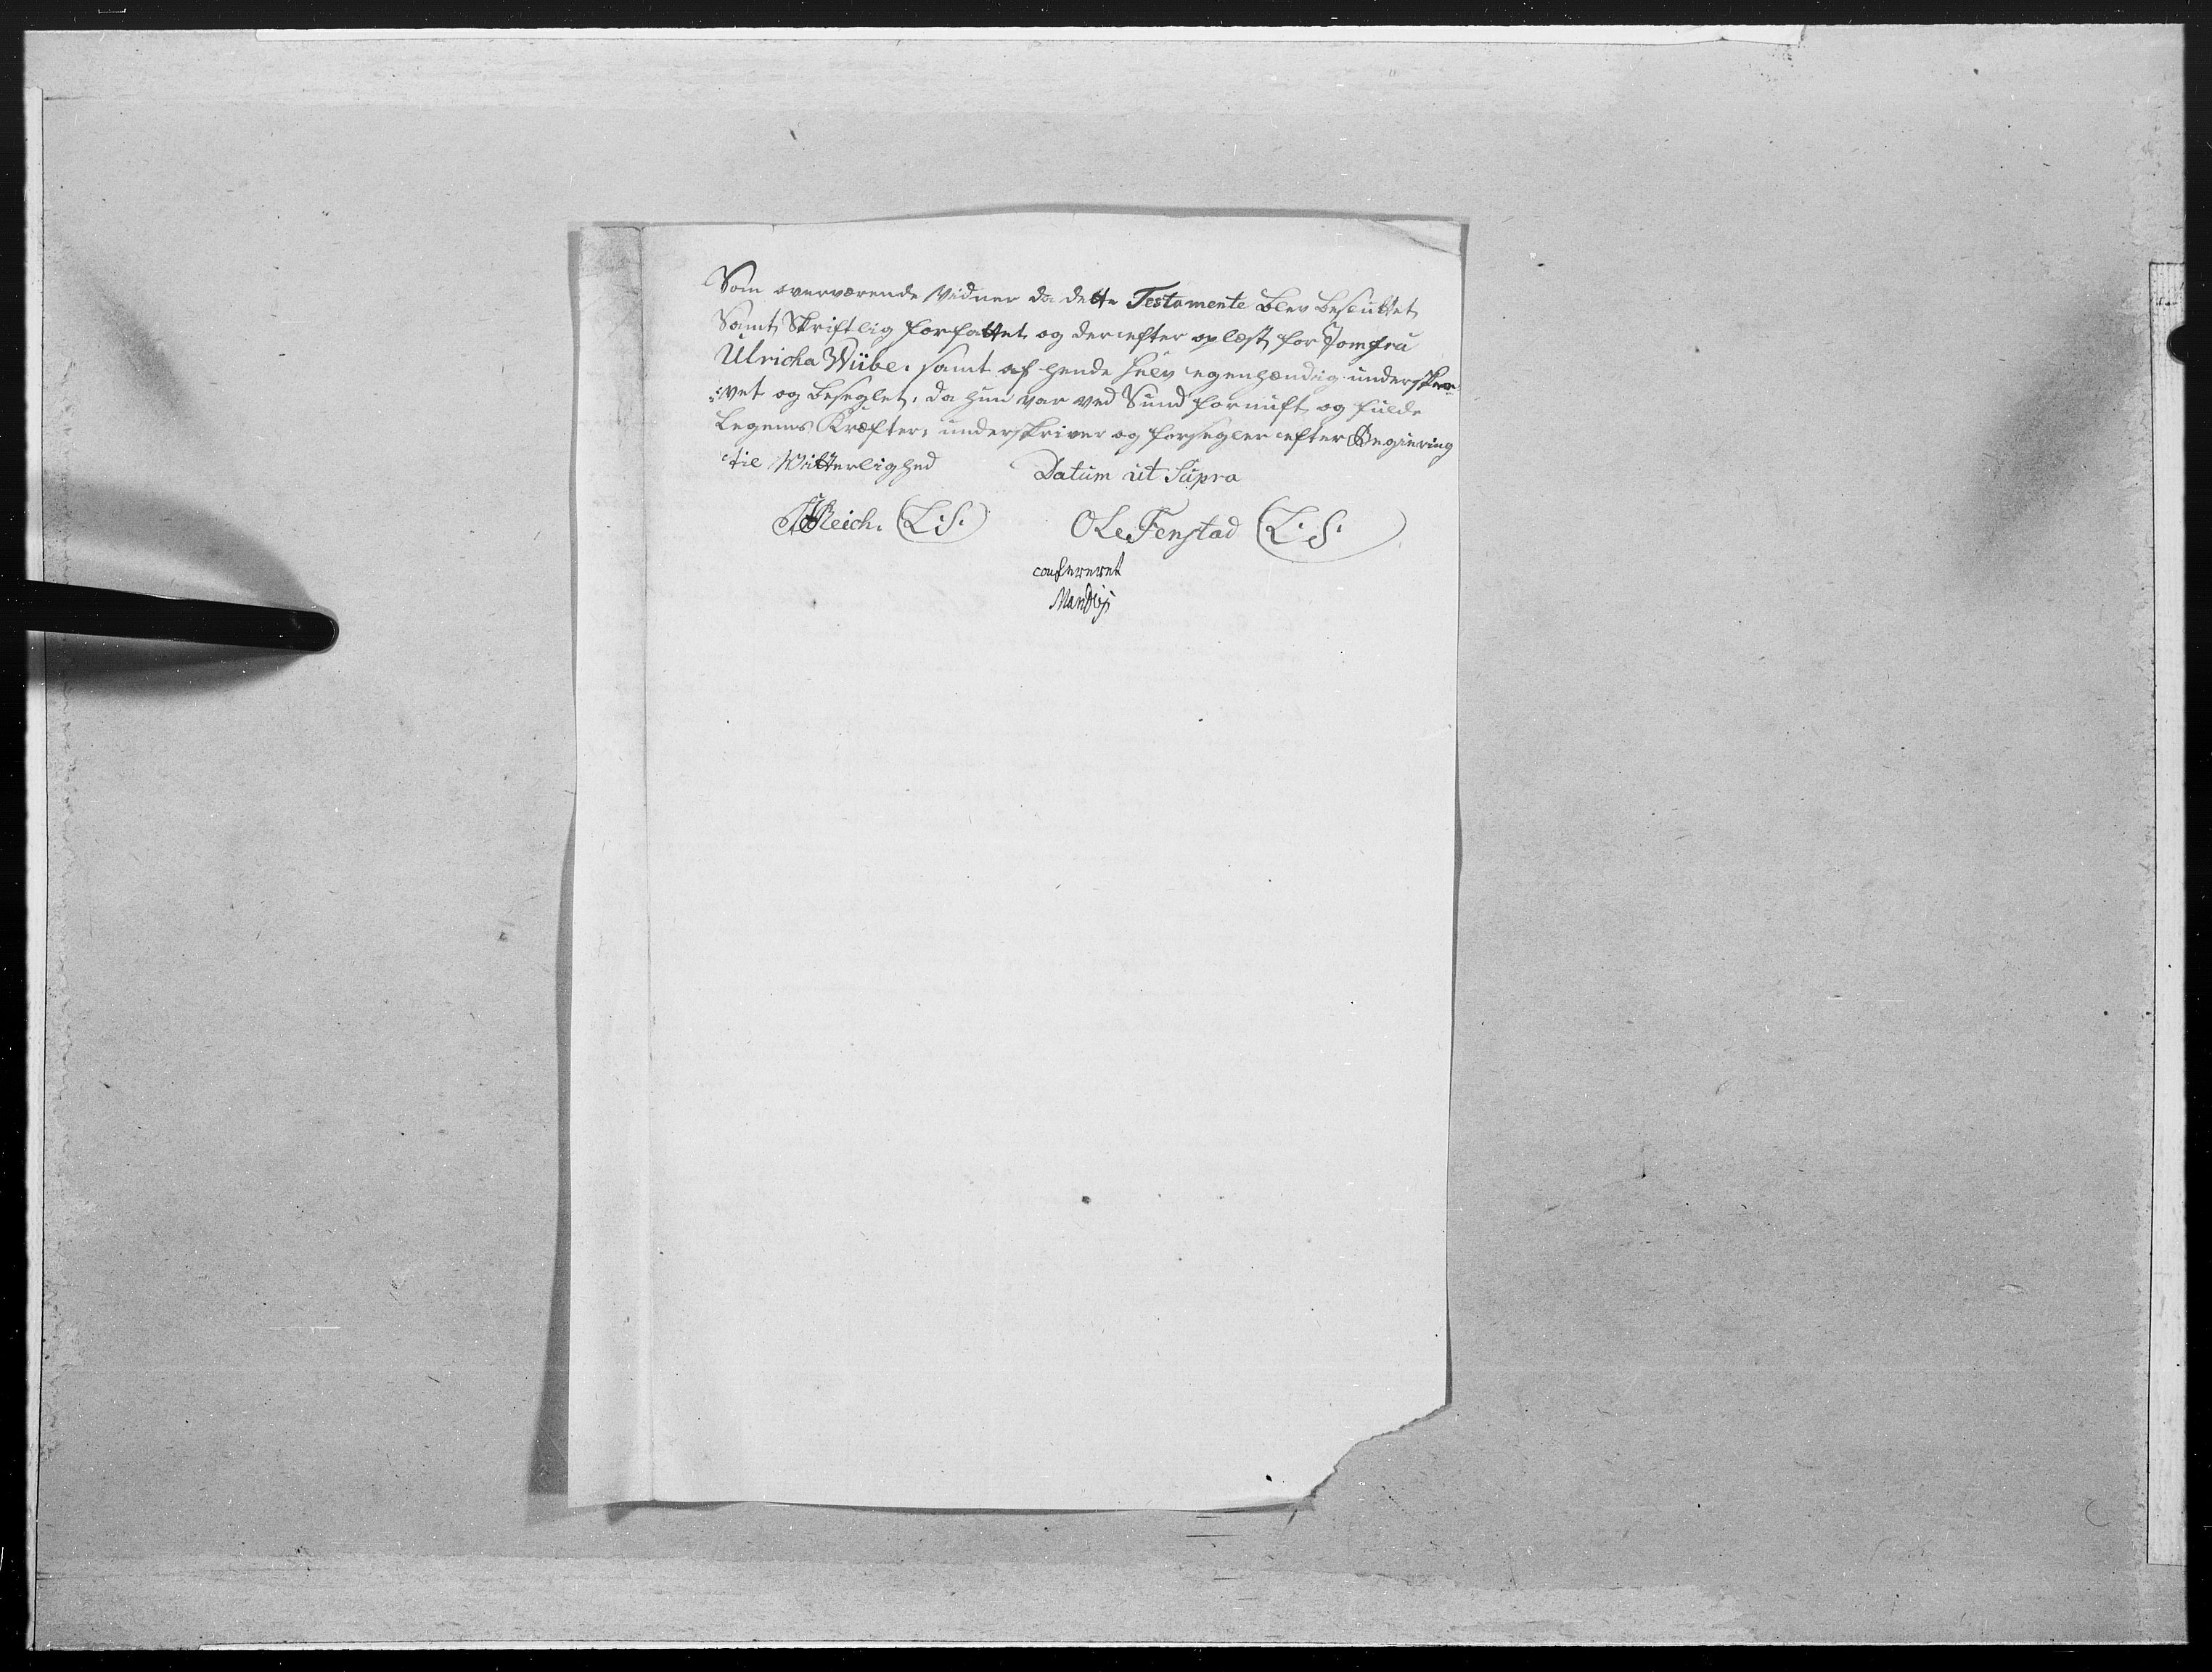 Som overværende Vidner da dette Testamente blev besluttet
Samt Skriftlig forfattet og derefter oplæst for Jomfru
Ulricha Wübe. samt af hende selv egenhændig underskre-
:vet og beseglet, da hun var ved Sund fornuft og fulde
Legems Kræfter, underskriver og forsegler efter Begiering
til Witterlighed Datum ut Supra
Reich. (L.S.) Ole Fenstad (L.S.)
confereret